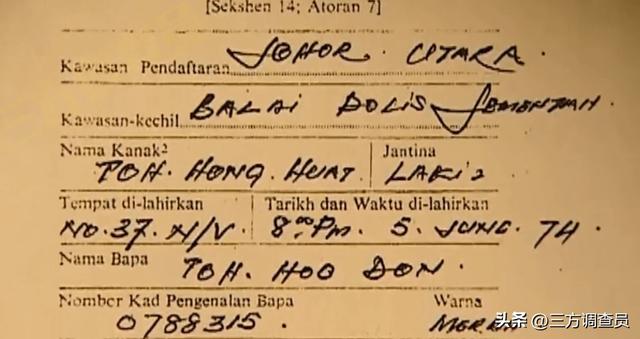 [Sekshen 14; Atoran 7]
Kawasan Pendaftaran JOHOR UTARA.
Kawasan-kechil BALAI POLIS JEMENTAH
Nama Kanak² Jantina
TOH. HONG. HUAT LAKI 2
Tempat di-lahirkan Tarikh dan Waktu di-lahirkan
NO. 37. N/V. 8.00 Pm. 5. JUNE. 74.
Nama Bapa
TOH. HOO DON.
Nombor Kad Pengenalan Bapa Warna
0788315. MERAH
头条 @三方调查员